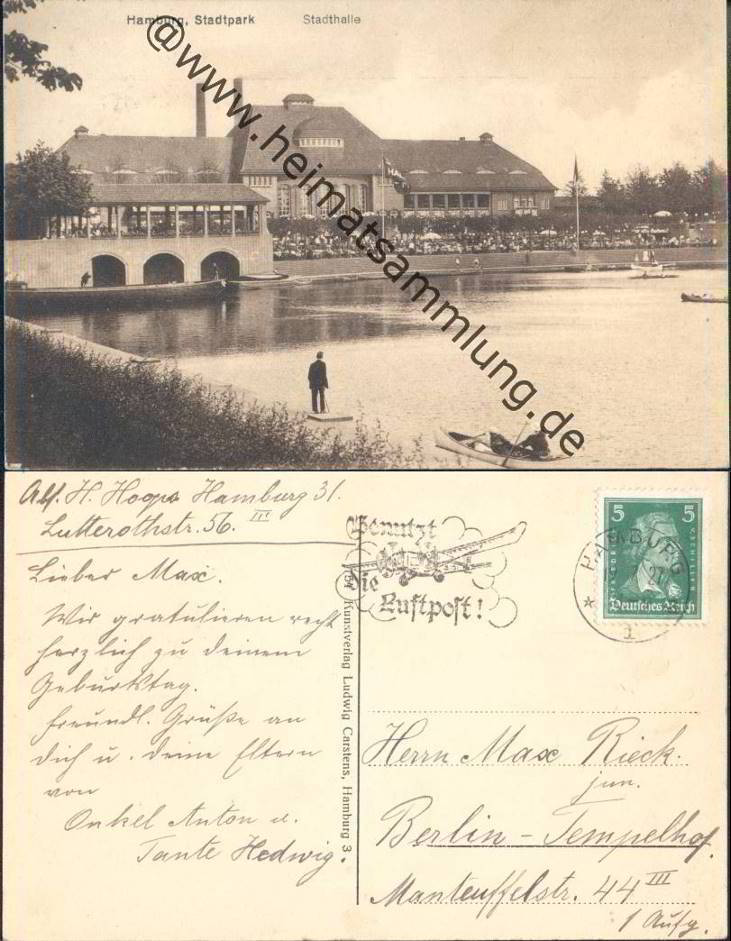 Hamburg, Stadtpark Stadthalle
@www.heimatsammlung.de
Abs. H. Hoops Hamburg 31.
Lutterothstr. 56. III
Lieber Max.
Wir gratulieren recht
herzlich zu deinem
Geburtstag.
Freundl. Grüße an
dich u. deine Eltern
von
Onkel Anton u.
Tante Hedwig.
Kunstverlag Ludwig Carstens, Hamburg 3
Benutzt
die
Luftpost!
HAMBURG
1
5 5
Deutsches Reich
Herrn Max Rieck.
jun.
Berlin-Tempelhof.
Manteuffelstr. 44 III
1 Aufg.